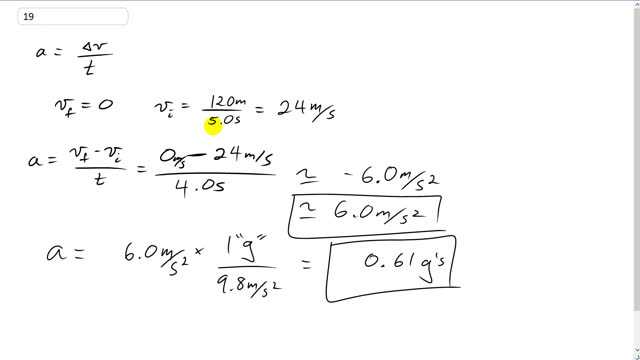 19
a = Δv / t
v_f = 0 v_i = 120m / 5.0s = 24 m/s
a = v_f - v_i / t = 0 m/s - 24 m/s / 4.0s ≃ -6.0 m/s²
≃ 6.0 m/s²
a = 6.0 m/s² × 1 "g" / 9.8 m/s² = 0.61 g's